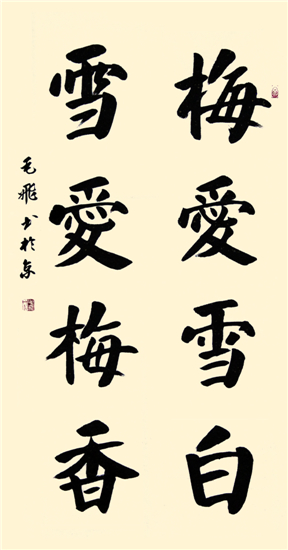 梅愛雪白
雪愛梅香
毛飛书於京